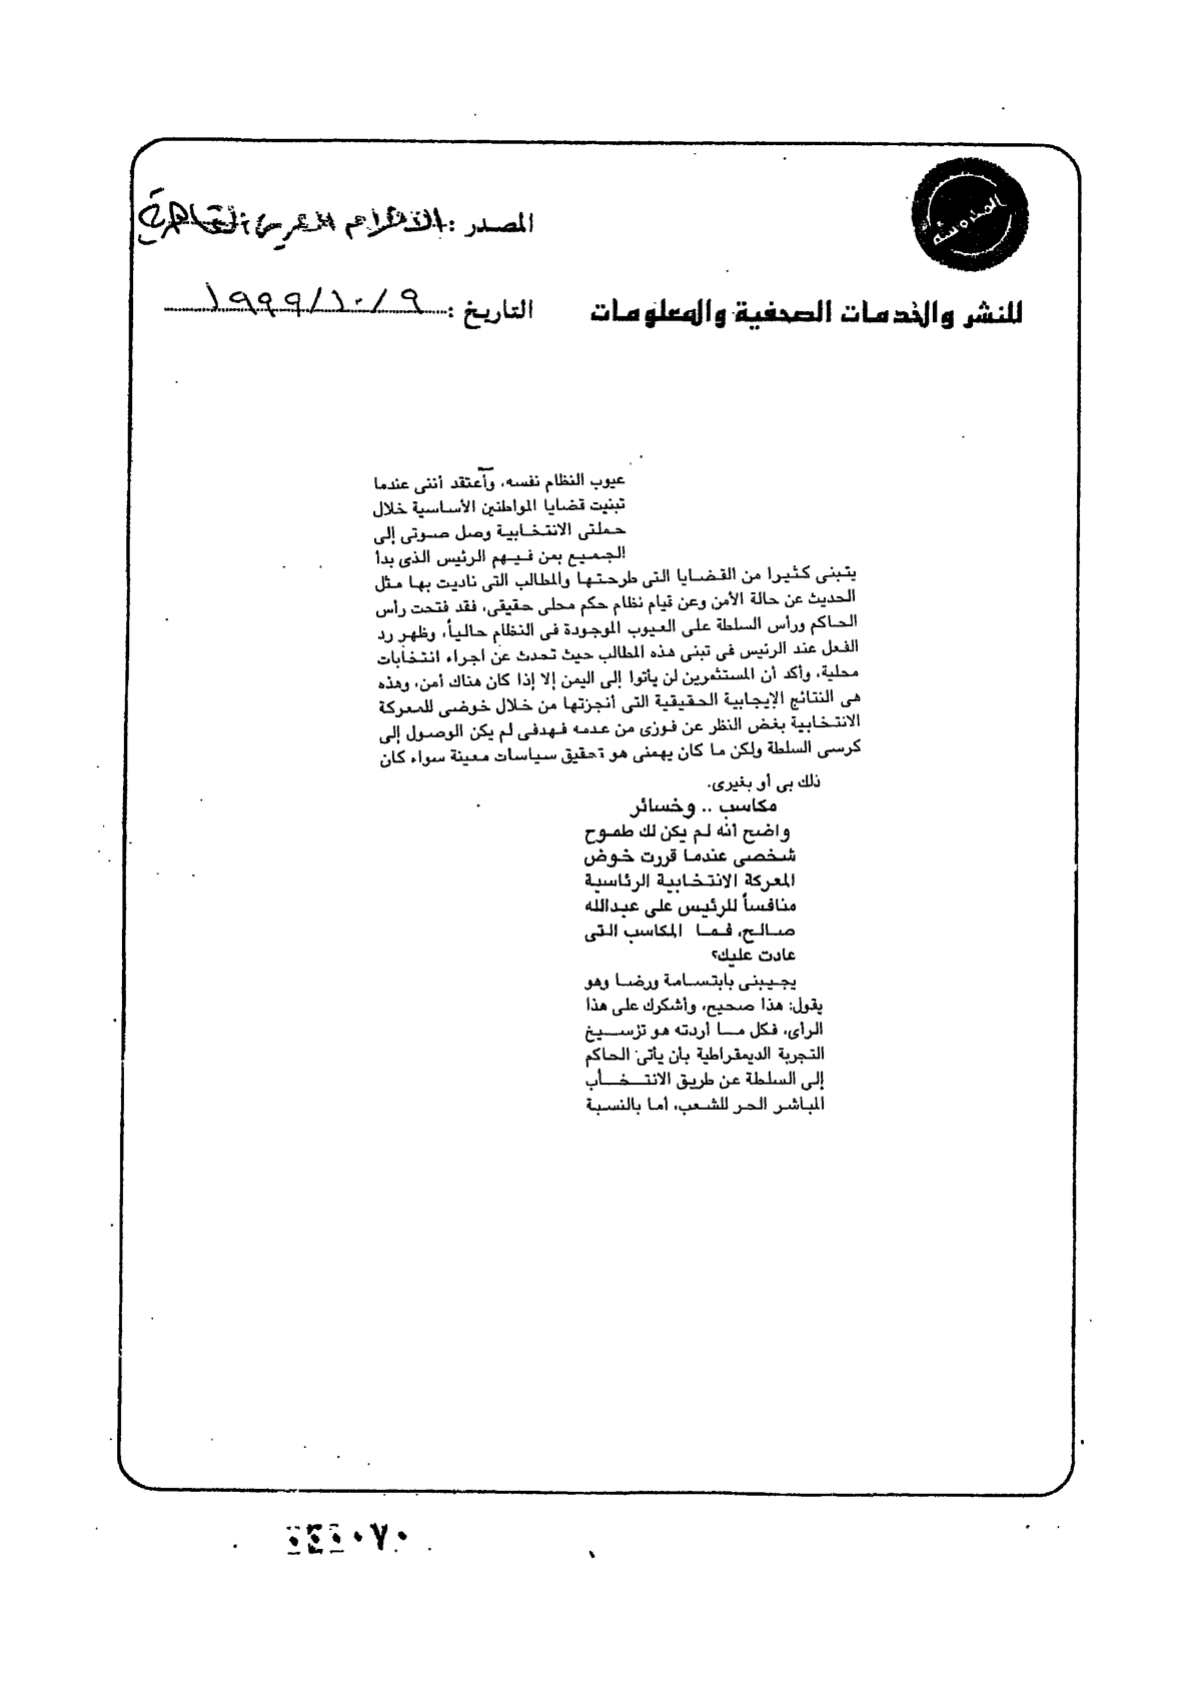 المحروسة
المصدر: الأهرام العربى القاهرة
للنشر والخدمات الصحفية والمعلومات
التاريخ: ٩/١٠/١٩٩٩
عيوب النظام نفسه، وأعتقد أننى عندما
تبنيت قضايا المواطنين الأساسية خلال
حملتى الانتخابية وصل صوتى إلى
الجميع بمن فيهم الرئيس الذى بدأ
يتبنى كثيرا من القضايا التى طرحتها والمطالب التى ناديت بها مثل
الحديث عن حالة الأمن وعن قيام نظام حكم محلى حقيقى، فقد فتحت رأس
الحاكم ورأس السلطة على العيوب الموجودة فى النظام حالياً، وظهر رد
الفعل عند الرئيس فى تبنى هذه المطالب حيث تحدث عن اجراء انتخابات
محلية، وأكد أن المستثمرين لن يأتوا إلى اليمن إلا إذا كان هناك أمن، وهذه
هى النتائج الإيجابية الحقيقية التى أنجزتها من خلال خوضى للمعركة
الانتخابية بغض النظر عن فوزى من عدمه فهدفى لم يكن الوصول إلى
كرسى السلطة ولكن ما كان يهمنى هو تحقيق سياسات معينة سواء كان
ذلك بى أو بغيرى.
مكاسب .. وخسائر
واضح أنه لم يكن لك طموح
شخصى عندما قررت خوض
المعركة الانتخابية الرئاسية
منافساً للرئيس على عبدالله
صالح، فما المكاسب التى
عادت عليك؟
يجيبنى بابتسامة ورضا وهو
يقول: هذا صحيح، وأشكرك على هذا
الرأى، فكل ما أردته هو ترسيخ
التجربة الديمقراطية بأن يأتى الحاكم
إلى السلطة عن طريق الانتخاب
المباشر الحر للشعب، أما بالنسبة